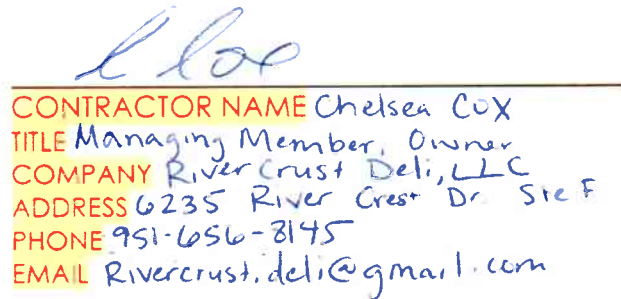 CONTRACTOR NAME Chelsea Cox
TITLE Managing Member, Owner
COMPANY River Crust Deli, LLC
ADDRESS 6235 River Crest Dr Ste F
PHONE 951-656-3145
EMAIL Rivercrust.deli@gmail.com